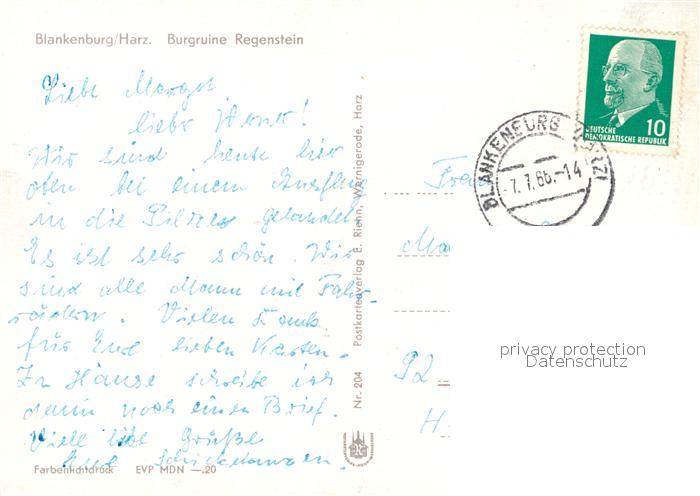 Blankenburg/Harz. Burgruine Regenstein
Liebe Margot,
lieber Werner!
Wir sind heute hier
oben bei einem Ausflug
in die Pilze gelandet
Es ist sehr schön. Wir
sind alle Mann mit Fahr-
rädern. Vielen Dank
für Eure lieben Karten.
Zu Hause schreibe ich
dann noch einen Brief.
Viele liebe Grüße
Eure
Farbenlichtdruck EVP MDN —.20
Nr. 204 Postkartenverlag E. Riehn, Wernigerode, Harz
DEUTSCHE
DEMOKRATISCHE REPUBLIK
10
BLANKENBURG (HARZ)
-7.7.66.-14
92
H
privacy protection
Datenschutz